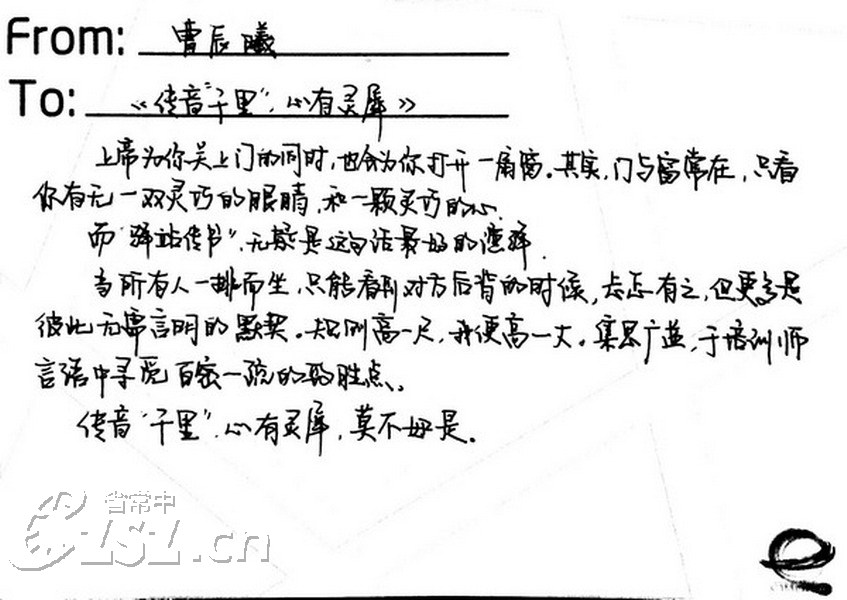 From: 曹辰曦
To: 《传音“千里”,心有灵犀》
上帝为你关上门的同时,也会为你打开一扇窗。其实,门与窗常在,只看
你有无一双灵巧的眼睛,和一颗灵巧的心.
而“驿站传书”,无疑是这句话最好的演绎.
当所有人一排而坐,只能看到对方后背的时候,忐忑有之,但更多是
彼此无需言明的默契。规则高一尺,我便高一丈。集思广益,于培训师
言语中寻觅百密一疏的致胜点。
传音“千里”,心有灵犀,莫不如是。
省常中
CSZ.cn